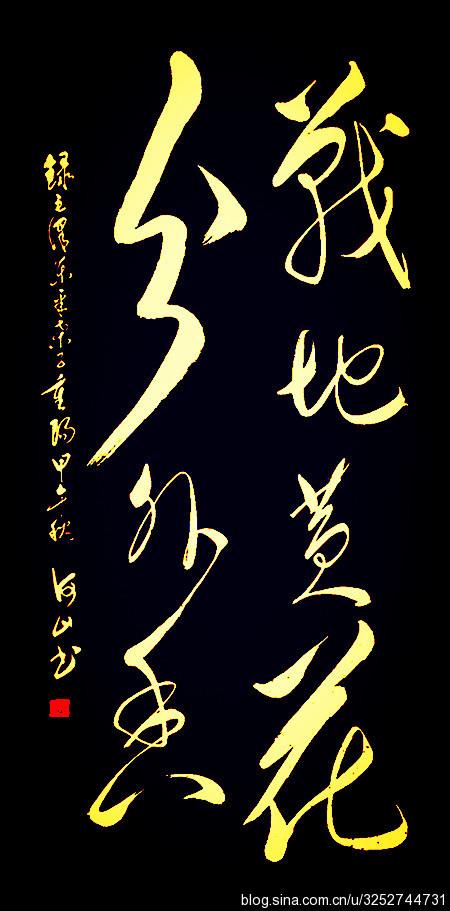 戰地黄花
分外香
録毛澤东采桑子重陽甲午秋 山书
blog.sina.com.cn/u/3252744731